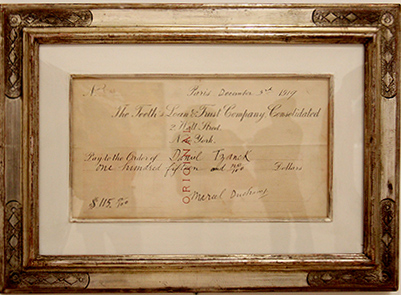 No
Paris December 3rd 1919
The Teeth's Loan & Trust Company, Consolidated
2 Wall Street,
New York.
Pay to the Order of Daniel Tzanck
one hundred fifteen and no/100 Dollars
$ 115. no/100 Marcel Duchamp
ORIGINAL